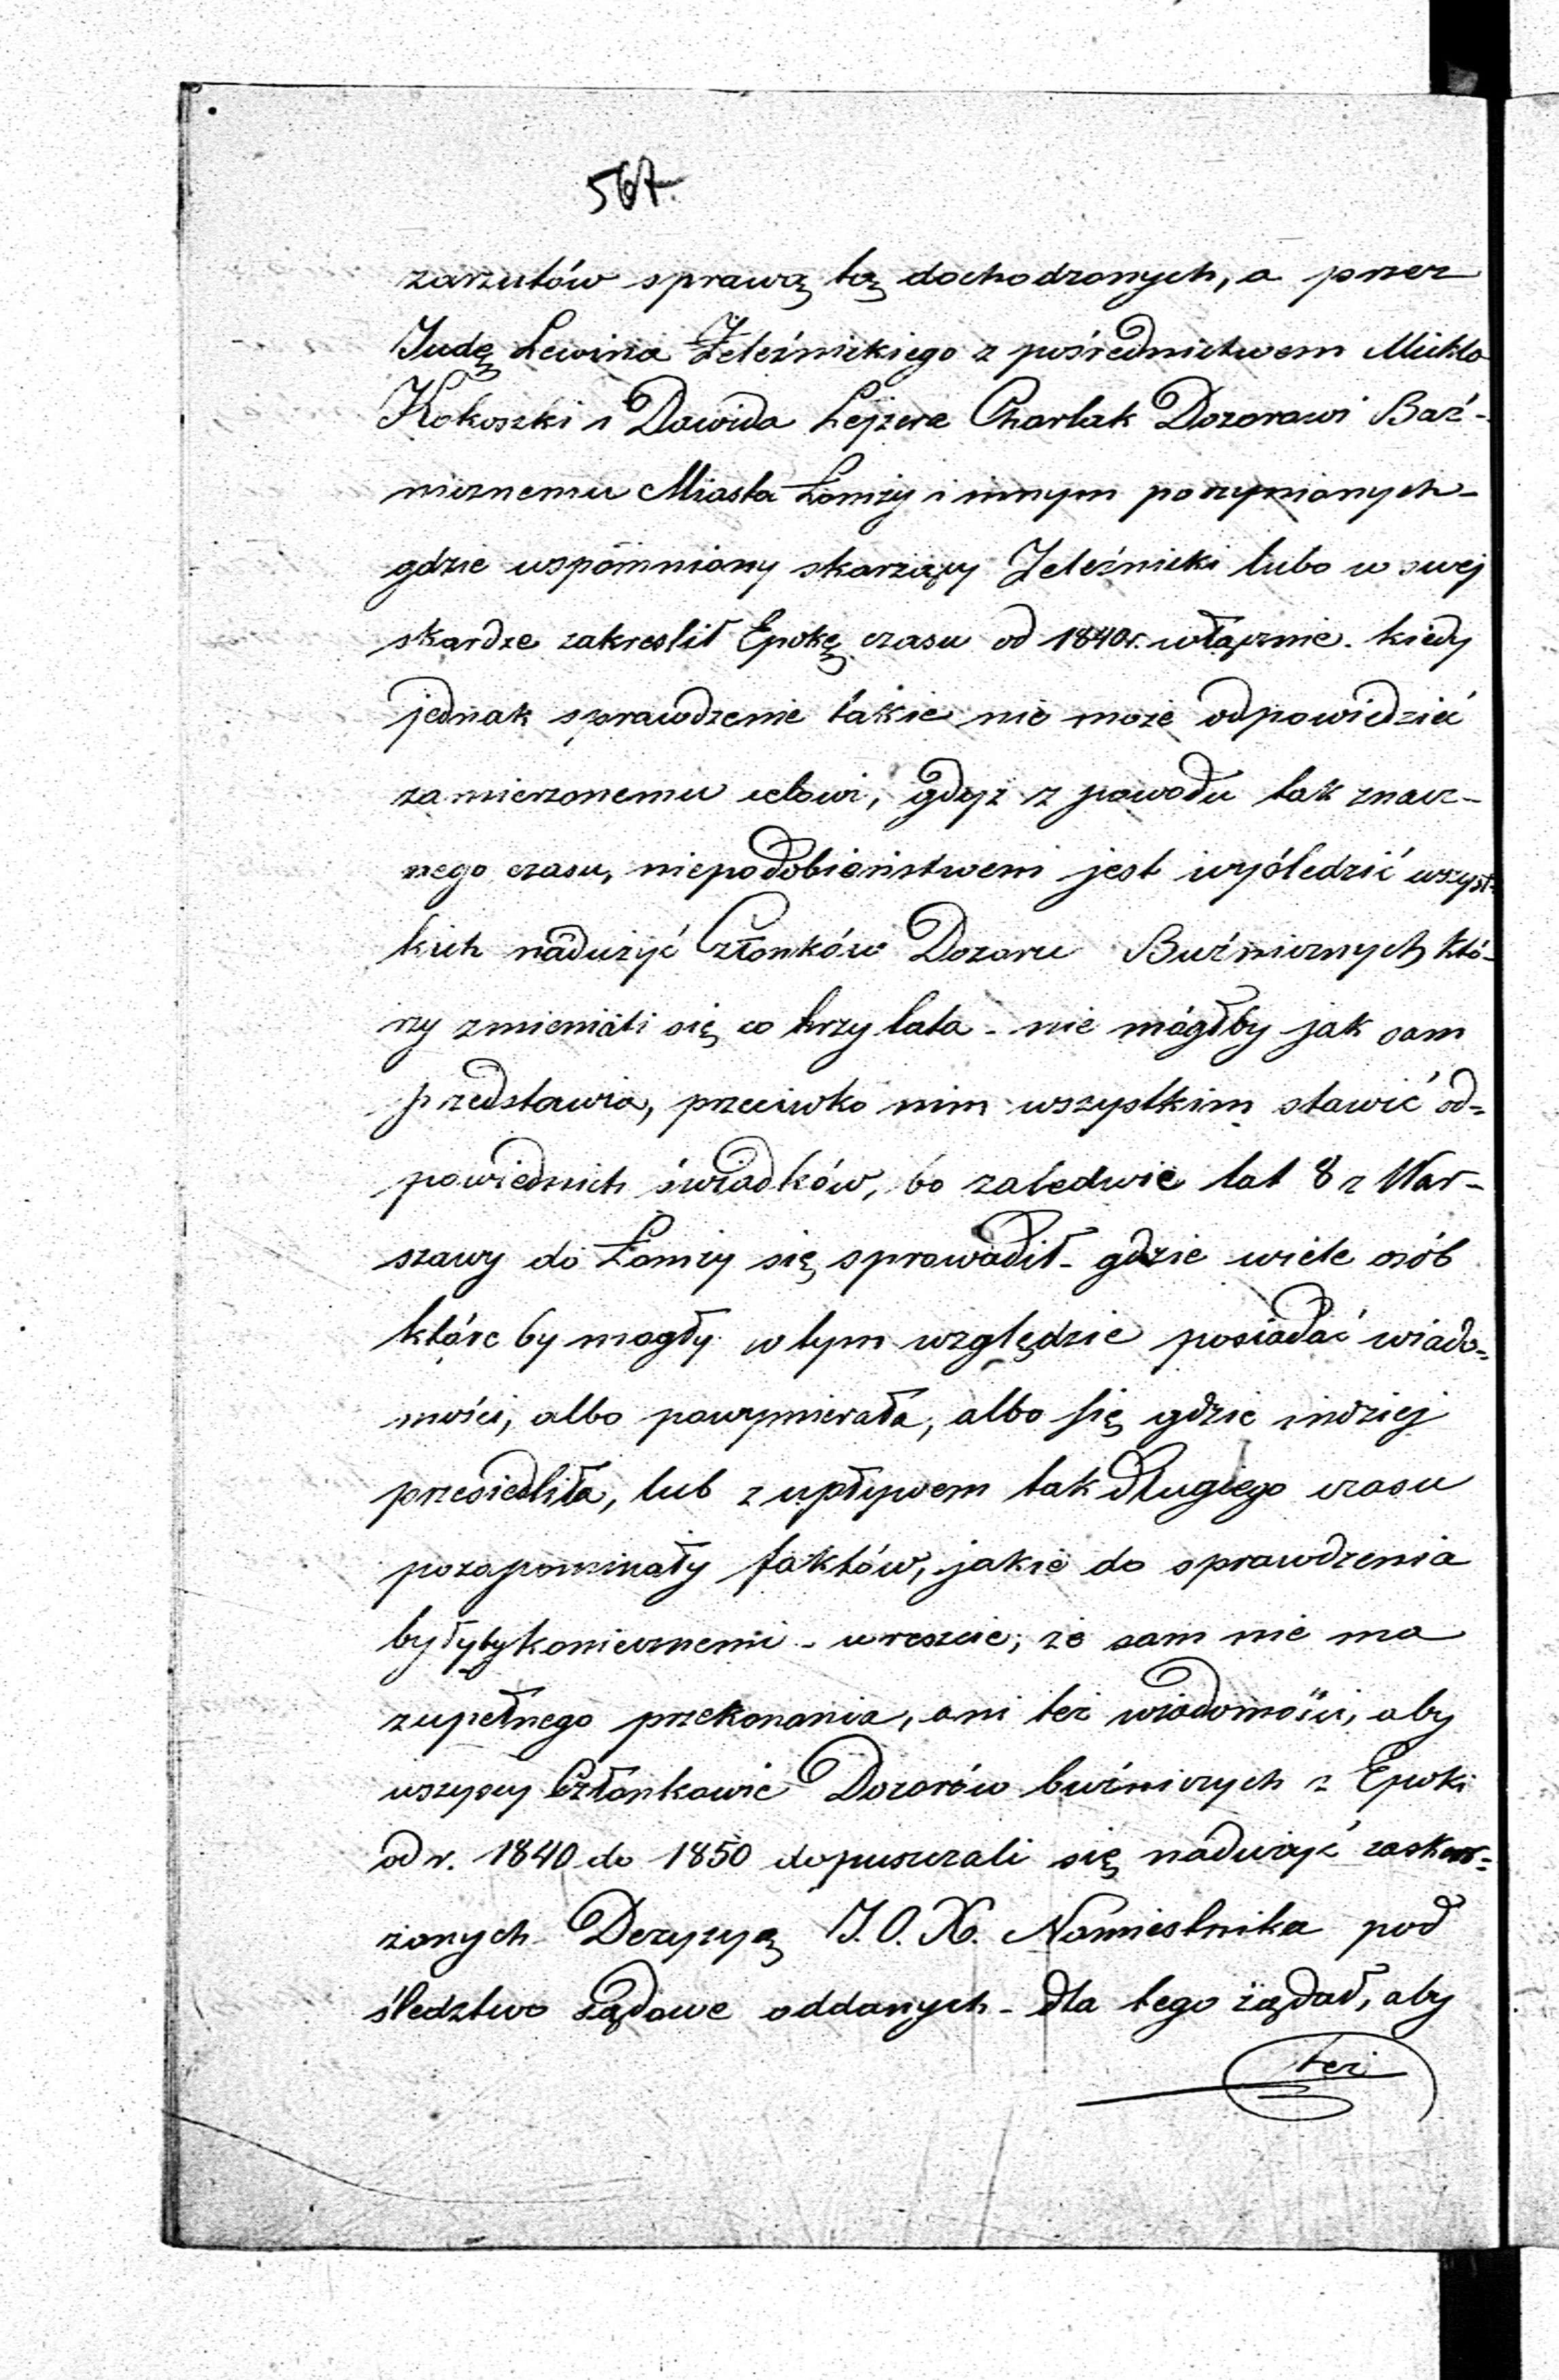 567.
zarzutów sprawą tą dochodzonych, a przez
Judę Lewina Zeleźnickiego z pośrednictwem Mickla
Kokoszki i Dawida Lejzera Charlak Dozorowi Baź-
nicznemu Miasta Łomży i innym poczynionych -
gdzie wspomniony skarżący Zeleźnicki lubo w swej
skardze zakreslił Epokę czasu od 1840r. włącznie. kiedy
jednak sprawdzenie takie nie może odpowiedzić
zamierzonemu celowi, gdyż z powodu tak znacz-
nego czasu, niepodobieństwem jest wyśledzić wszyst-
kich nadużyć Członków Dozoru Buźnicznych któ-
rzy zmieniali się co trzy lata - nie mógłby jak sam
przedstawia, przeciwko nim wszystkim stawić od=
powiednich świadków, bo zaledwie lat 8 z War-
szawy do Łomży się sprowadił - gdzie wiele osób
które by mogły w tym względzie posiadać wiado=
mości, albo powymierała, albo się gdzie indziej
przesiedliła, lub z upływem tak długiego czasu
pozapominały faktów, jakie do sprawdzenia
byłyby koniecznemi - wreszcie, że sam nie ma
zupełnego przekonania, ani też wiadomości, aby
wszyscy Członkowie Dozorów buźniczych z Epoki
od r. 1840 do 1850 dopuszczali się nadużyć zaskar=
żonych Decyzyą J. O. X. Namiestnika pod
śledztwo sądowe oddanych - dla tego żądał, aby
też